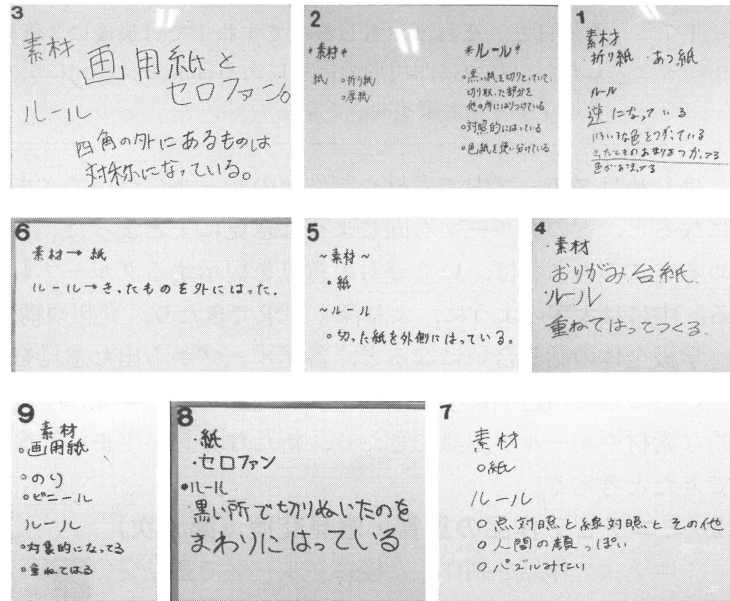 3
素材 画用紙と
セロファン。
ルール
四角の外にあるものは
対称になっている。
2
*素材*
紙 ○折り紙
○厚紙
*ルール*
○黒い紙を切りとっていて、
切り取った部分を
他の所にはりつけている
○対照的にはっている
○色紙を使い分けている
1
素材
・折り紙 ・あつ紙
ルール
逆になっている
いろいろな色をつかっている
色が
6
素材→ 紙
ルール→きったものを外にはった.
5
~素材~
・紙
~ルール
○切った紙を外側にはっている。
4
・素材
おりがみ 台紙.
・ルール
重ねてはってつくる.
9
素材
○画用紙
○のり
○ビニール
ルール
○対象的になってる
○重ねてはる
8
・紙
・セロファン
●ルール
黒い所で切りぬいたのを
まわりにはっている
7
素材
○紙
ルール
○点対照と線対照とその他
○人間の顔っぽい
○パズルみたい